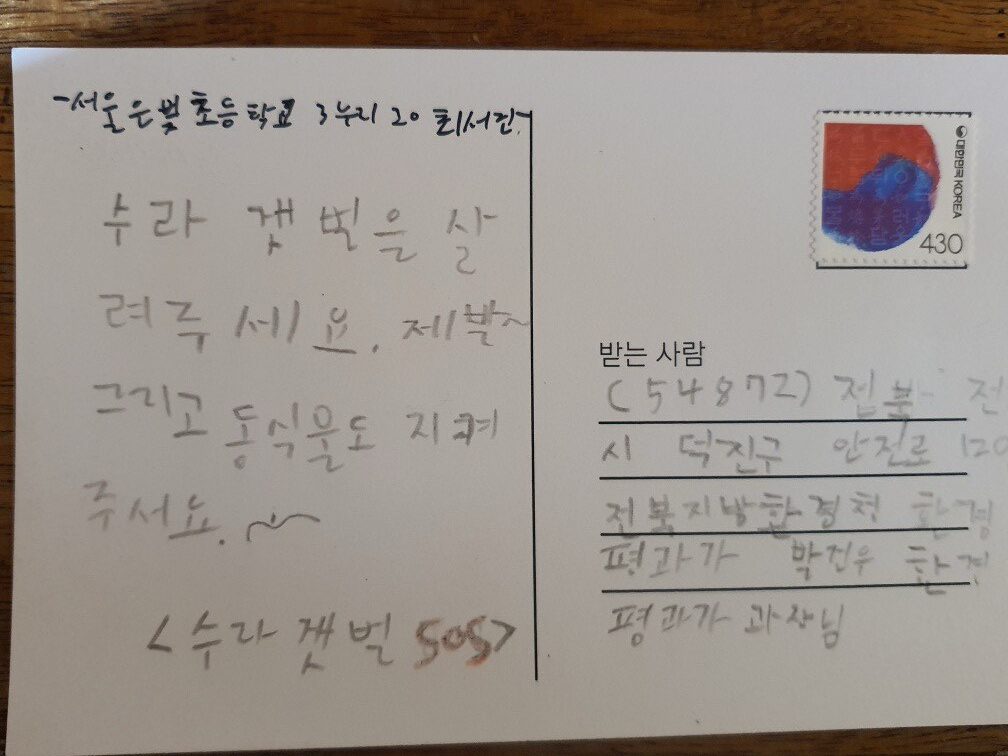 -서울은빛초등학교 3누리 20 최서린-
수라 갯벌을 살
려주세요. 제발~
그리고 동식물도 지켜
주서요.
<수라갯벌 SOS>
대한민국 KOREA
430
받는 사람
(54872) 전북 전
시 덕진구 안전로 120
전북지방환경청 환경
평과가 박진우 환경
평과가 과장님